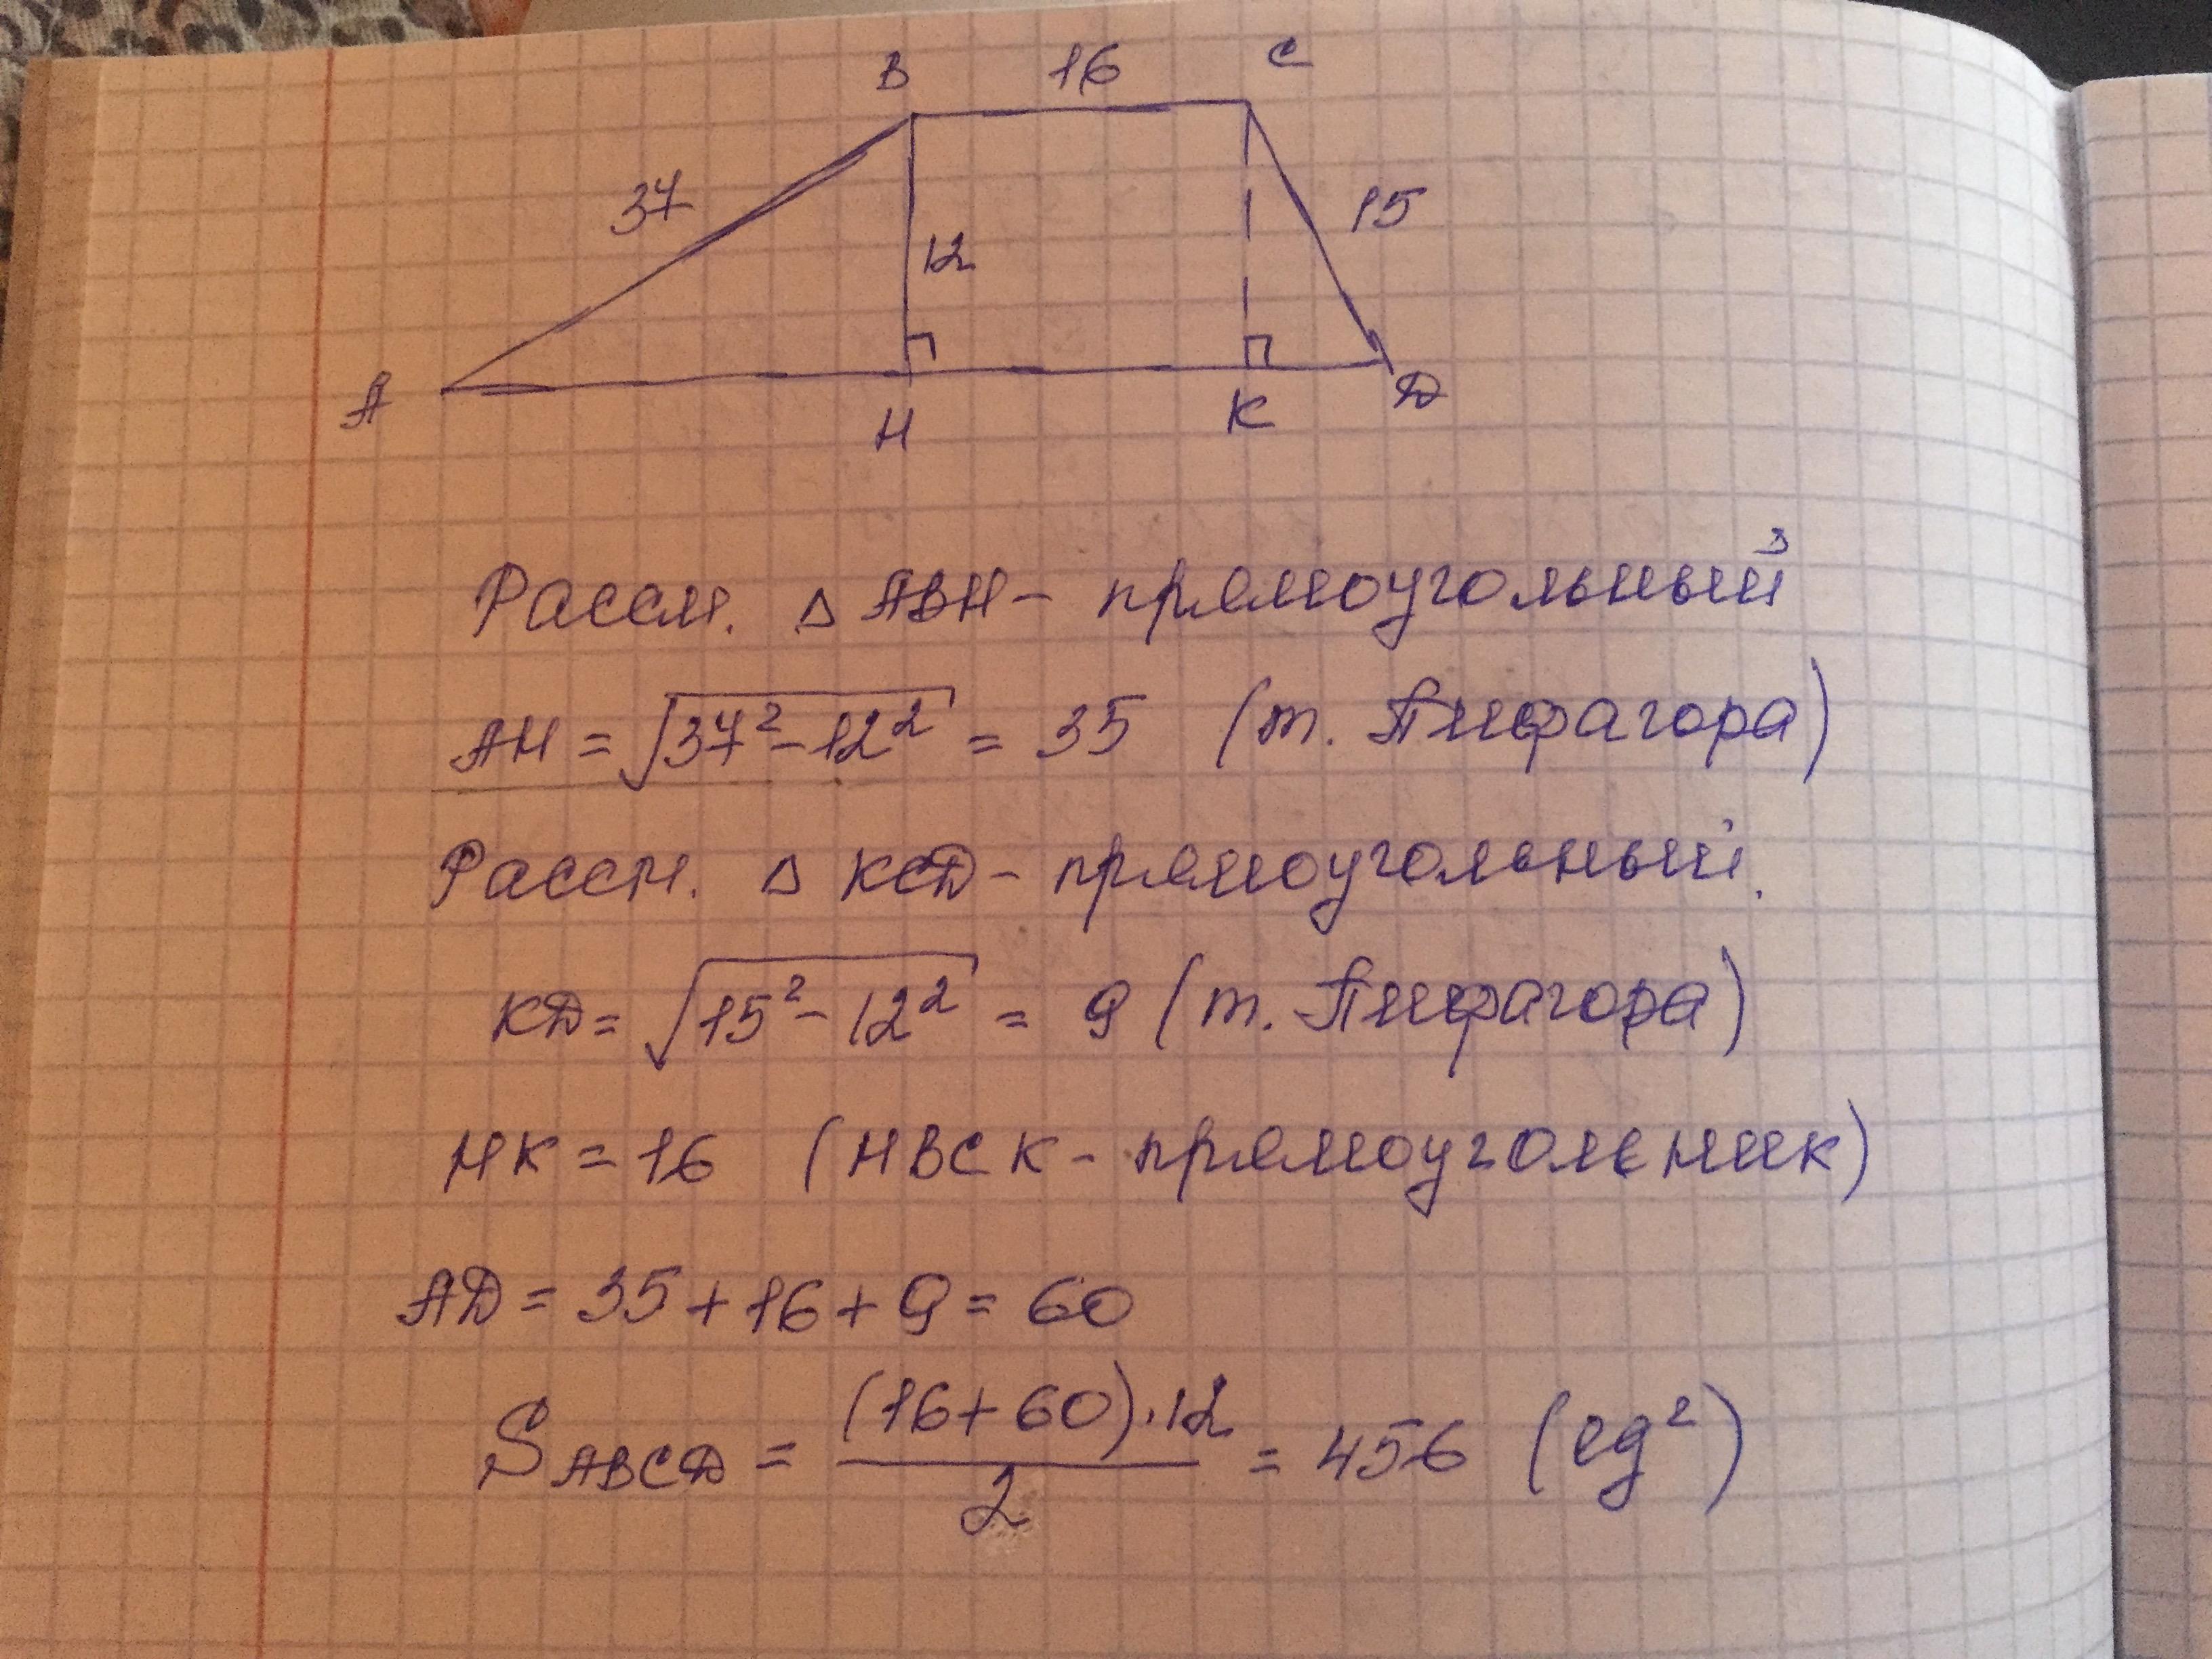 B 16 C
37 12 15
A H K D
Рассм. △ ABH - прямоугольный
AH = √37² - 12² = 35 (т. Пифагора)
Рассм. △ KCD - прямоугольный.
KD = √15² - 12² = 9 (т. Пифагора)
HK = 16 (HBCK - прямоугольник)
AD = 35 + 16 + 9 = 60
S ABCD = (16 + 60) · 12 / 2 = 456 (ед²)